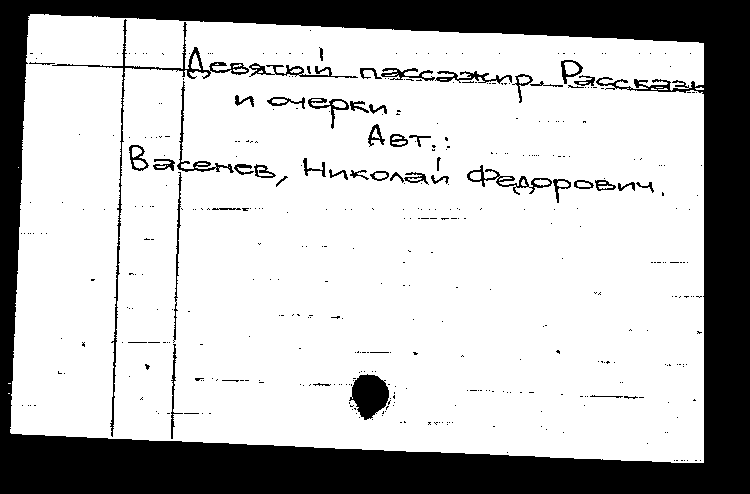 Девятый пассажир. Рассказы
и очерки.
Авт.:
Васенев, Николай Федорович.